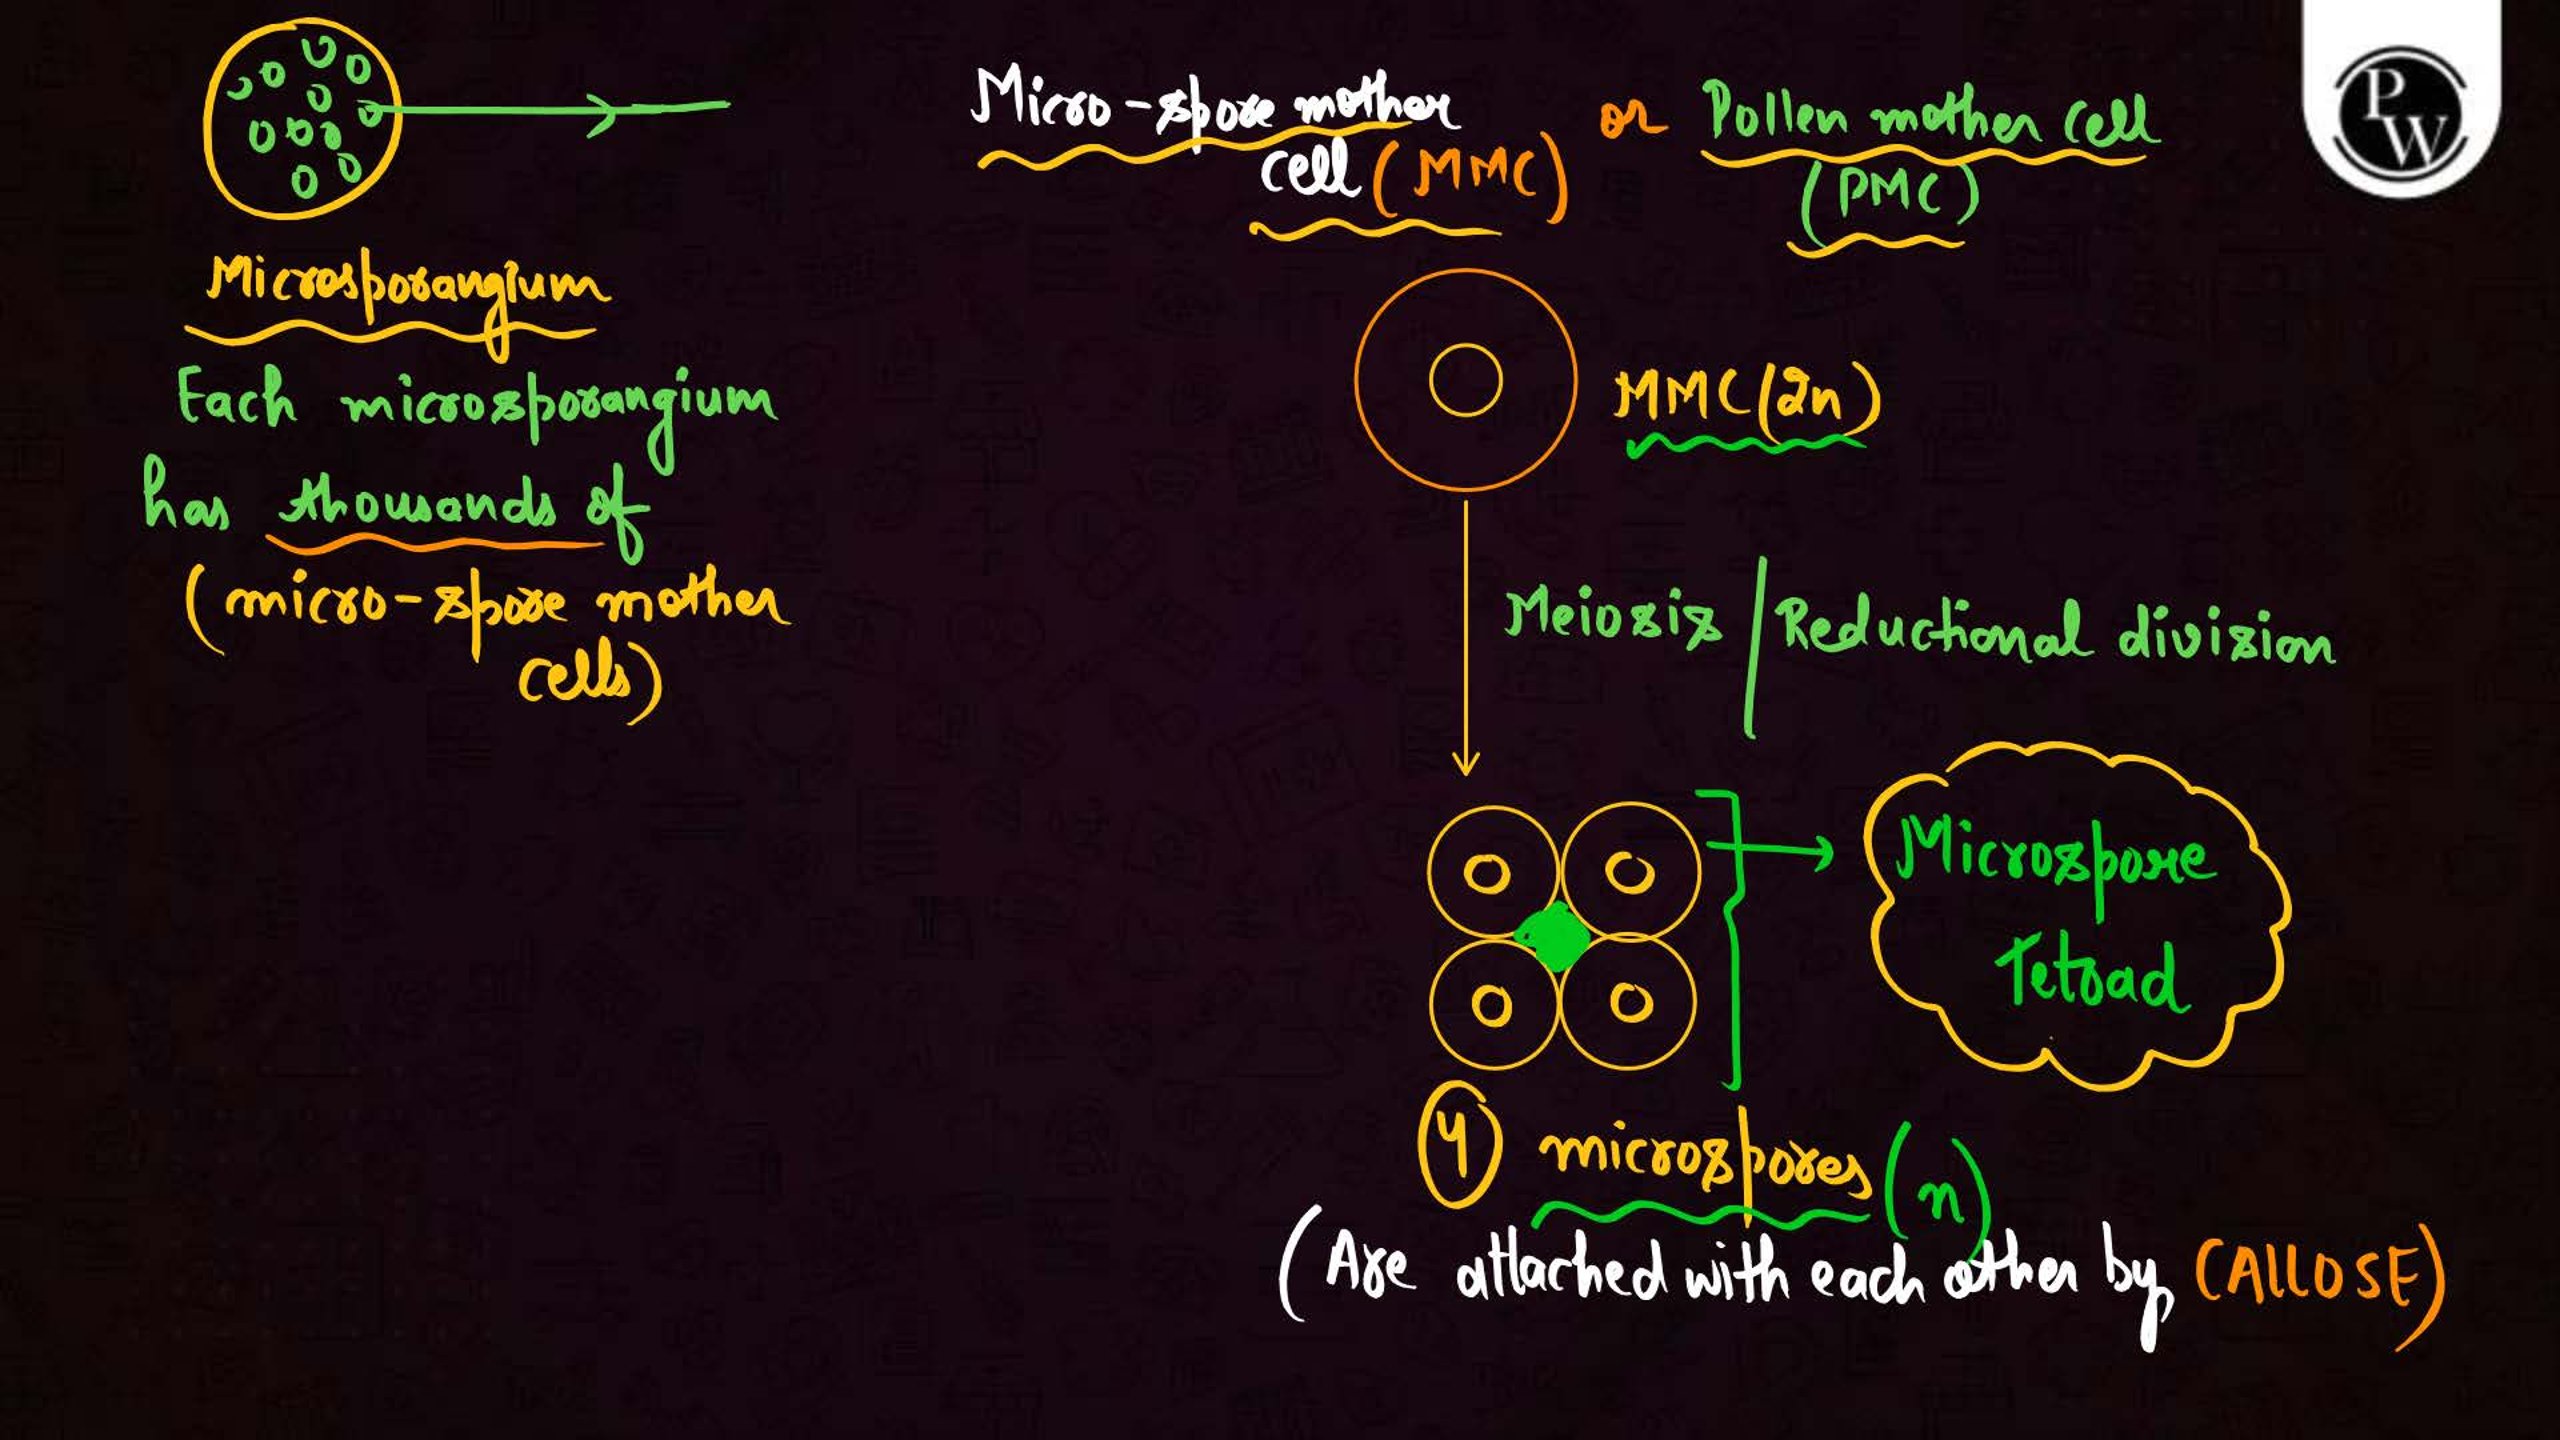 Micro-spore mother cell (MMC) or Pollen mother cell (PMC)
Microsporangium
Each microsporangium
has thousands of
(micro-spore mother
cells)
MMC (2n)
Meiosis | Reductional division
Microspore
Tetrad
4 microspores (n)
(Are attached with each other by CALLOSE)
PW